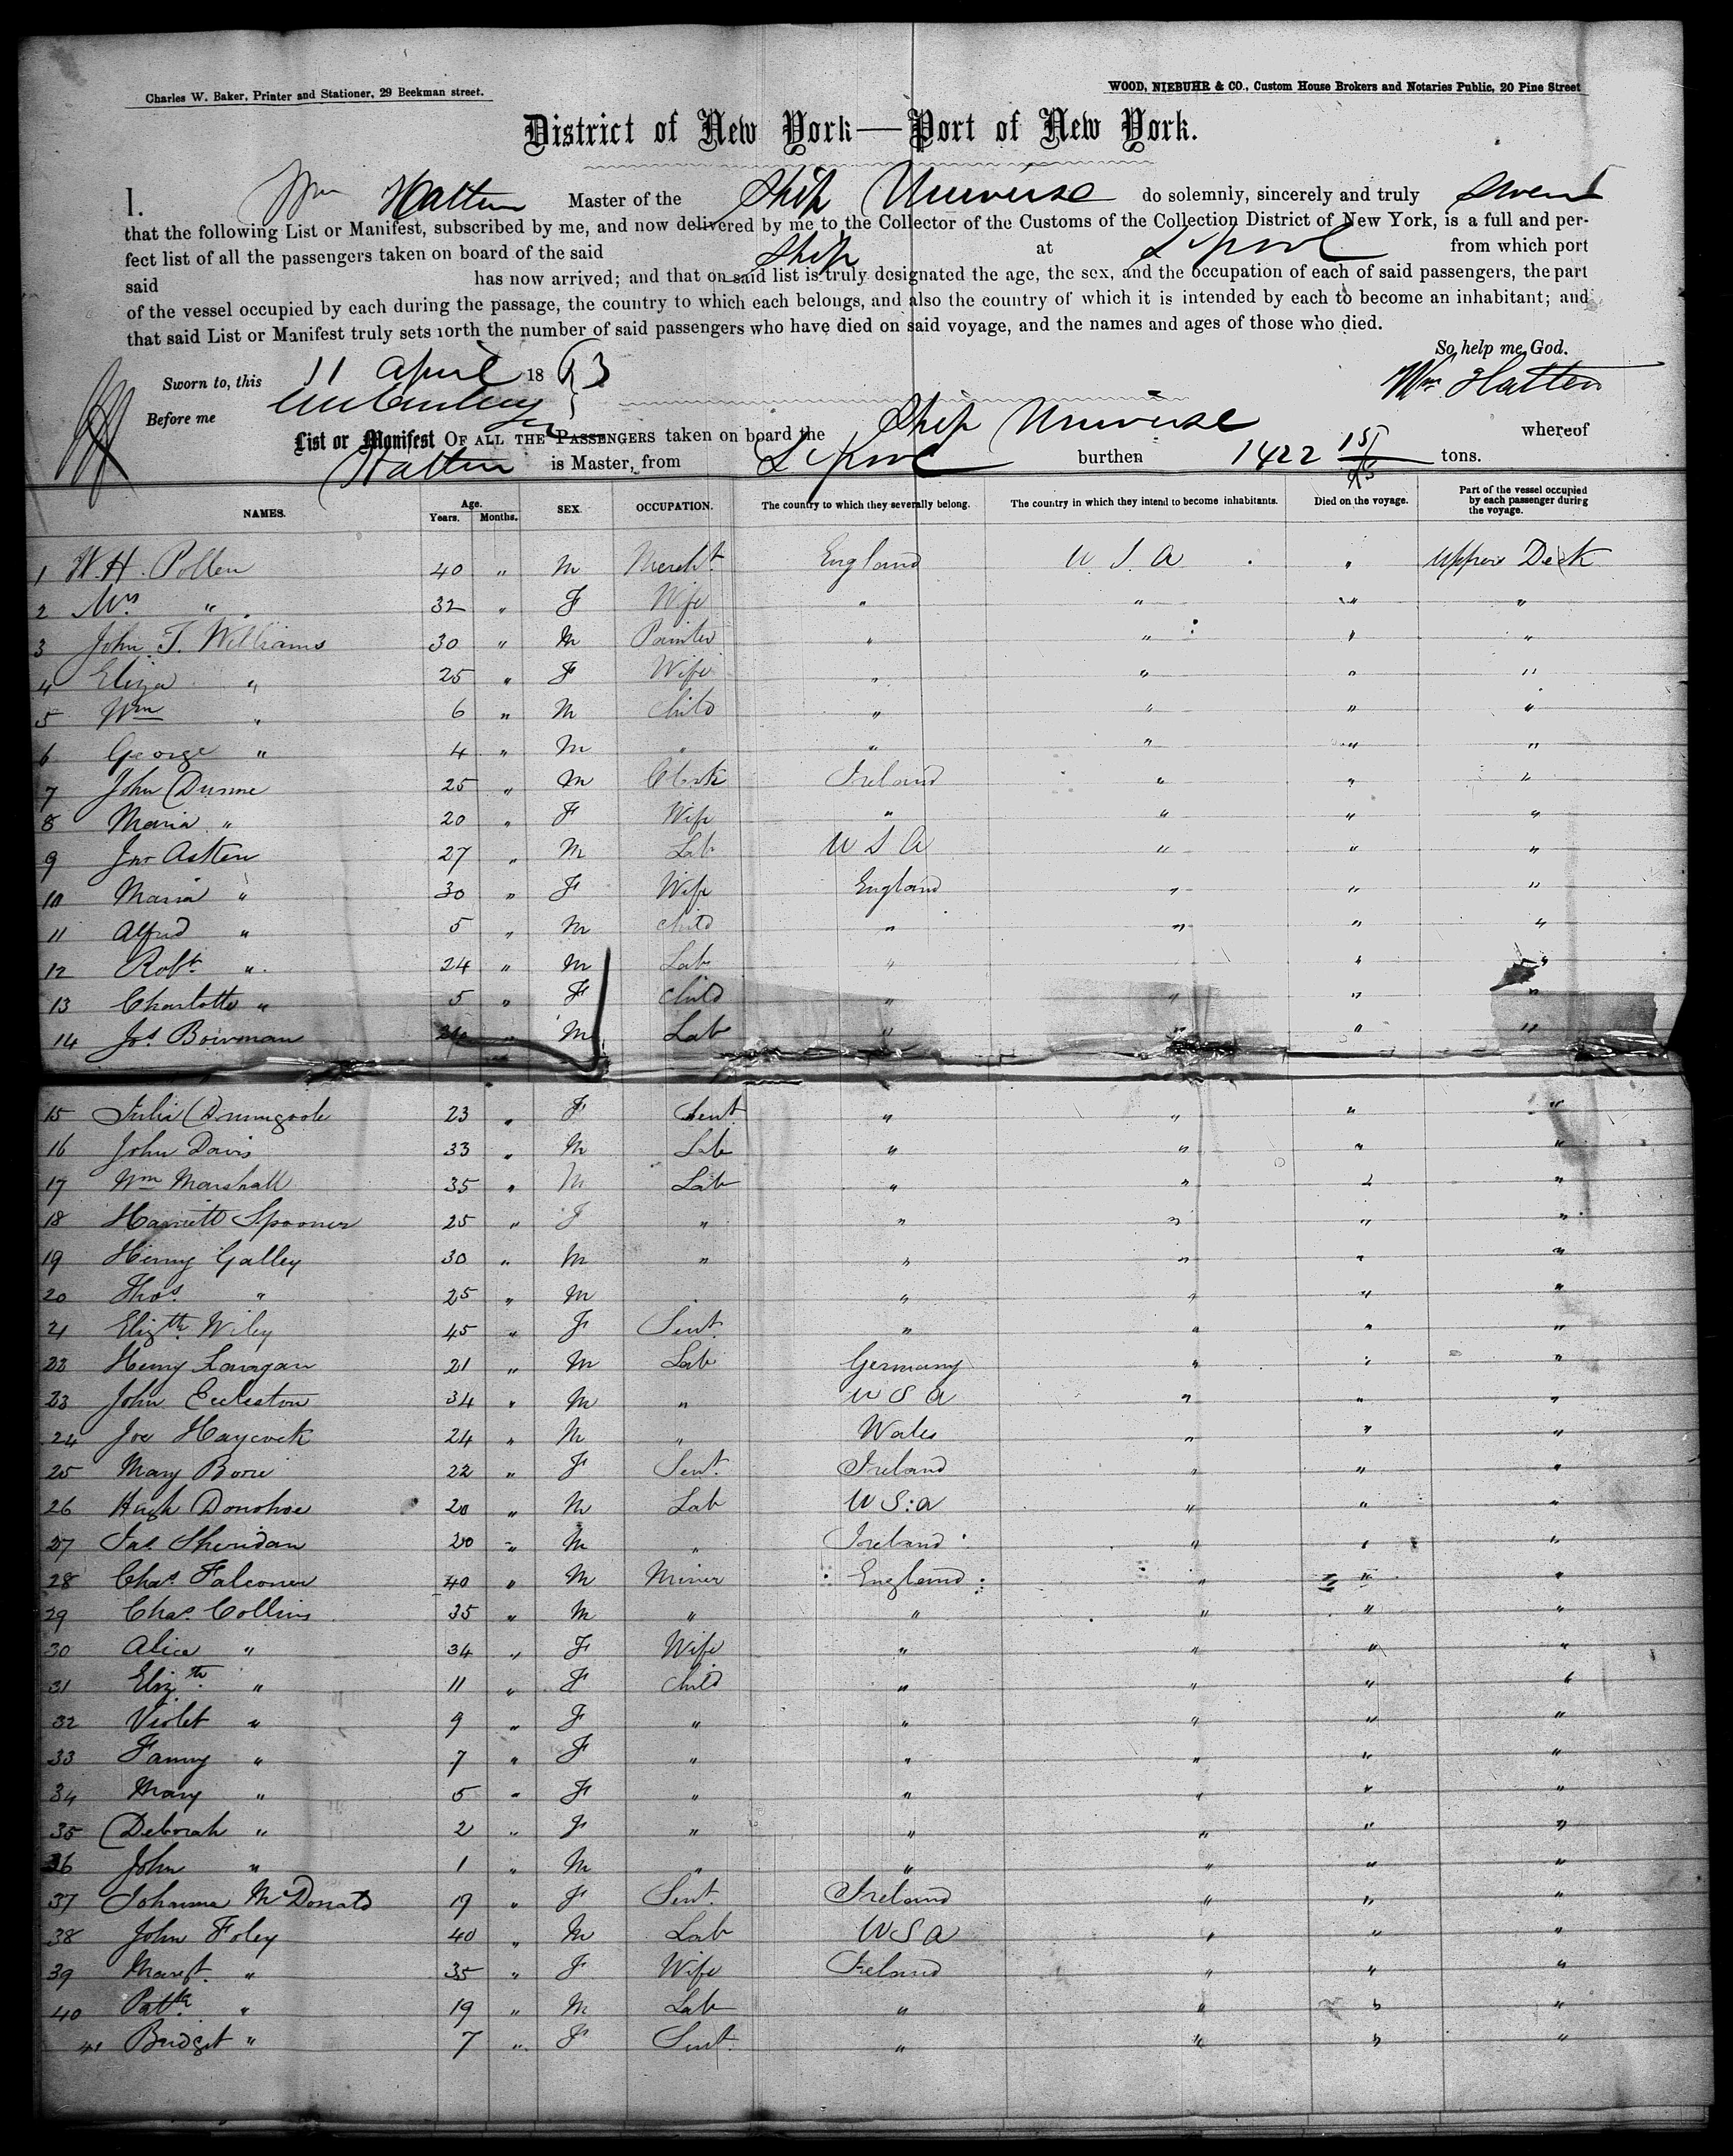 Charles W. Baker, Printer and Stationer, 29 Beekman street.
WOOD, NIEBUHR & CO., Custom House Brokers and Notaries Public, 20 Pine Street
District of New York—Port of New York.
I, Wm Hatten Master of the Ship Universe do solemnly, sincerely and truly swear
that the following List or Manifest, subscribed by me, and now delivered by me to the Collector of the Customs of the Collection District of New York, is a full and per-
fect list of all the passengers taken on board of the said Ship at L'pool from which port
said has now arrived; and that on said list is truly designated the age, the sex, and the occupation of each of said passengers, the part
of the vessel occupied by each during the passage, the country to which each belongs, and also the country of which it is intended by each to become an inhabitant; and
that said List or Manifest truly sets forth the number of said passengers who have died on said voyage, and the names and ages of those who died.
So help me God.
Sworn to, this 11 April 1863
Wm Hatten
Before me
List or Manifest OF ALL THE PASSENGERS taken on board the Ship Universe whereof
Hatten is Master, from L'pool burthen 1422 15/95 tons.
NAMES. Age. Years. Months. SEX. OCCUPATION. The country to which they severally belong. The country in which they intend to become inhabitants. Died on the voyage. Part of the vessel occupied by each passenger during the voyage.
1 W. H. Pollen 40 " M Mercht England U S A " Upper Deck
2 Mrs " 32 " F Wife " " " "
3 John T. Williams 30 " M Painter " " " "
4 Eliza " 25 " F Wife " " " "
5 Wm " 6 " M Child " " " "
6 George " 4 " M " " " " "
7 John Dunne 25 " M Clerk Ireland " " "
8 Maria " 20 " F Wife " " " "
9 Jno Asken 27 " M Lab U S A " " "
10 Maria " 30 " F Wife England " " "
11 Alfred " 5 " M Child " " " "
12 Robt " 24 " M Lab " " "
13 Charlotte " 5 " F Child " " " "
14 Jos Bowman M Lab " " " "
15 Julia Drumgoole 23 " F Sert " " " "
16 John Davis 33 " M Lab " " " "
17 Wm Marshall 35 " M Lab " " " "
18 Harriett Spooner 25 " F " " " " "
19 Henry Galley 30 " M " " " " "
20 Thos " 25 " M " " " "
21 Elizth Wiley 45 " F Sert " " " "
22 Henry Lanagan 21 " M Lab Germany " " "
23 John Eccleston 34 " M " U S A " " "
24 Joe Haycock 24 " M " Wales " " "
25 Mary Borre 22 " F Sert Ireland " " "
26 Hugh Donohoe 20 " M Lab U S A " " "
27 Jas Sheridan 20 " M " Ireland " " "
28 Chas Falconer 40 " M Miner England " " "
29 Chas Collins 35 " M " " " " "
30 Alice " 34 " F Wife " " " "
31 Elizth " 11 " F Child " " " "
32 Violet " 9 " F " " " " "
33 Fanny " 7 " F " " " " "
34 Mary " 5 " F " " " " "
35 Deborah " 2 " F " " " " "
36 John " 1 " M " " " " "
37 Johanna McDonald 19 " F Sert Ireland " " "
38 John Foley 40 " M Lab U S A " " "
39 Margt " 35 " F Wife Ireland " " "
40 Patk " 19 " M Lab " " " "
41 Bridget " 7 " F Sert " " " "